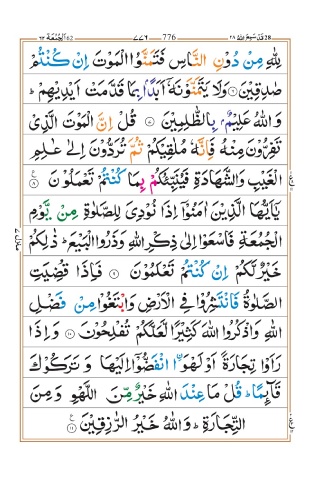 الجمعة ٦٢ 776 ٧٧٦ قد سمع الله ٢٨
لِلّٰهِ مِنْ دُوْنِ النَّاسِ فَتَمَنَّوُا الْمَوْتَ اِنْ كُنْتُمْ
صٰدِقِيْنَ ۝٦ وَلَا يَتَمَنَّوْنَهٗۤ اَبَدًۢا بِمَا قَدَّمَتْ اَيْدِيْهِمْ ؕ
وَاللّٰهُ عَلِيْمٌۢ بِالظّٰلِمِيْنَ ۝٧ قُلْ اِنَّ الْمَوْتَ الَّذِيْ
تَفِرُّوْنَ مِنْهُ فَاِنَّهٗ مُلٰقِيْكُمْ ثُمَّ تُرَدُّوْنَ اِلٰى عٰلِمِ
الْغَيْبِ وَالشَّهَادَةِ فَيُنَبِّئُكُمْ بِمَا كُنْتُمْ تَعْمَلُوْنَ ۝٨
يٰۤاَيُّهَا الَّذِيْنَ اٰمَنُوْۤا اِذَا نُوْدِيَ لِلصَّلٰوةِ مِنْ يَّوْمِ
الْجُمُعَةِ فَاسْعَوْا اِلٰى ذِكْرِ اللّٰهِ وَذَرُوا الْبَيْعَ ؕ ذٰلِكُمْ
خَيْرٌ لَّكُمْ اِنْ كُنْتُمْ تَعْلَمُوْنَ ۝٩ فَاِذَا قُضِيَتِ
الصَّلٰوةُ فَانْتَشِرُوْا فِي الْاَرْضِ وَابْتَغُوْا مِنْ فَضْلِ
اللّٰهِ وَاذْكُرُوا اللّٰهَ كَثِيْرًا لَّعَلَّكُمْ تُفْلِحُوْنَ ۝١٠ وَاِذَا
رَاَوْا تِجَارَةً اَوْ لَهْوَا۟ ۨانْفَضُّوْۤا اِلَيْهَا وَ تَرَكُوْكَ
قَآئِمًا ؕ قُلْ مَا عِنْدَ اللّٰهِ خَيْرٌ مِّنَ اللَّهْوِ وَمِنَ
التِّجَارَةِ ؕ وَاللّٰهُ خَيْرُ الرّٰزِقِيْنَ ۝١١